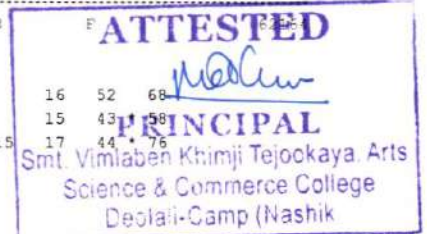 F
ATTESTED
16 52 68
15 43 * 58
PRINCIPAL
15 17 44 * 76
Smt. Vimlaben Khimji Tejookaya. Arts
Science & Commerce College
Deolali-Camp (Nashik